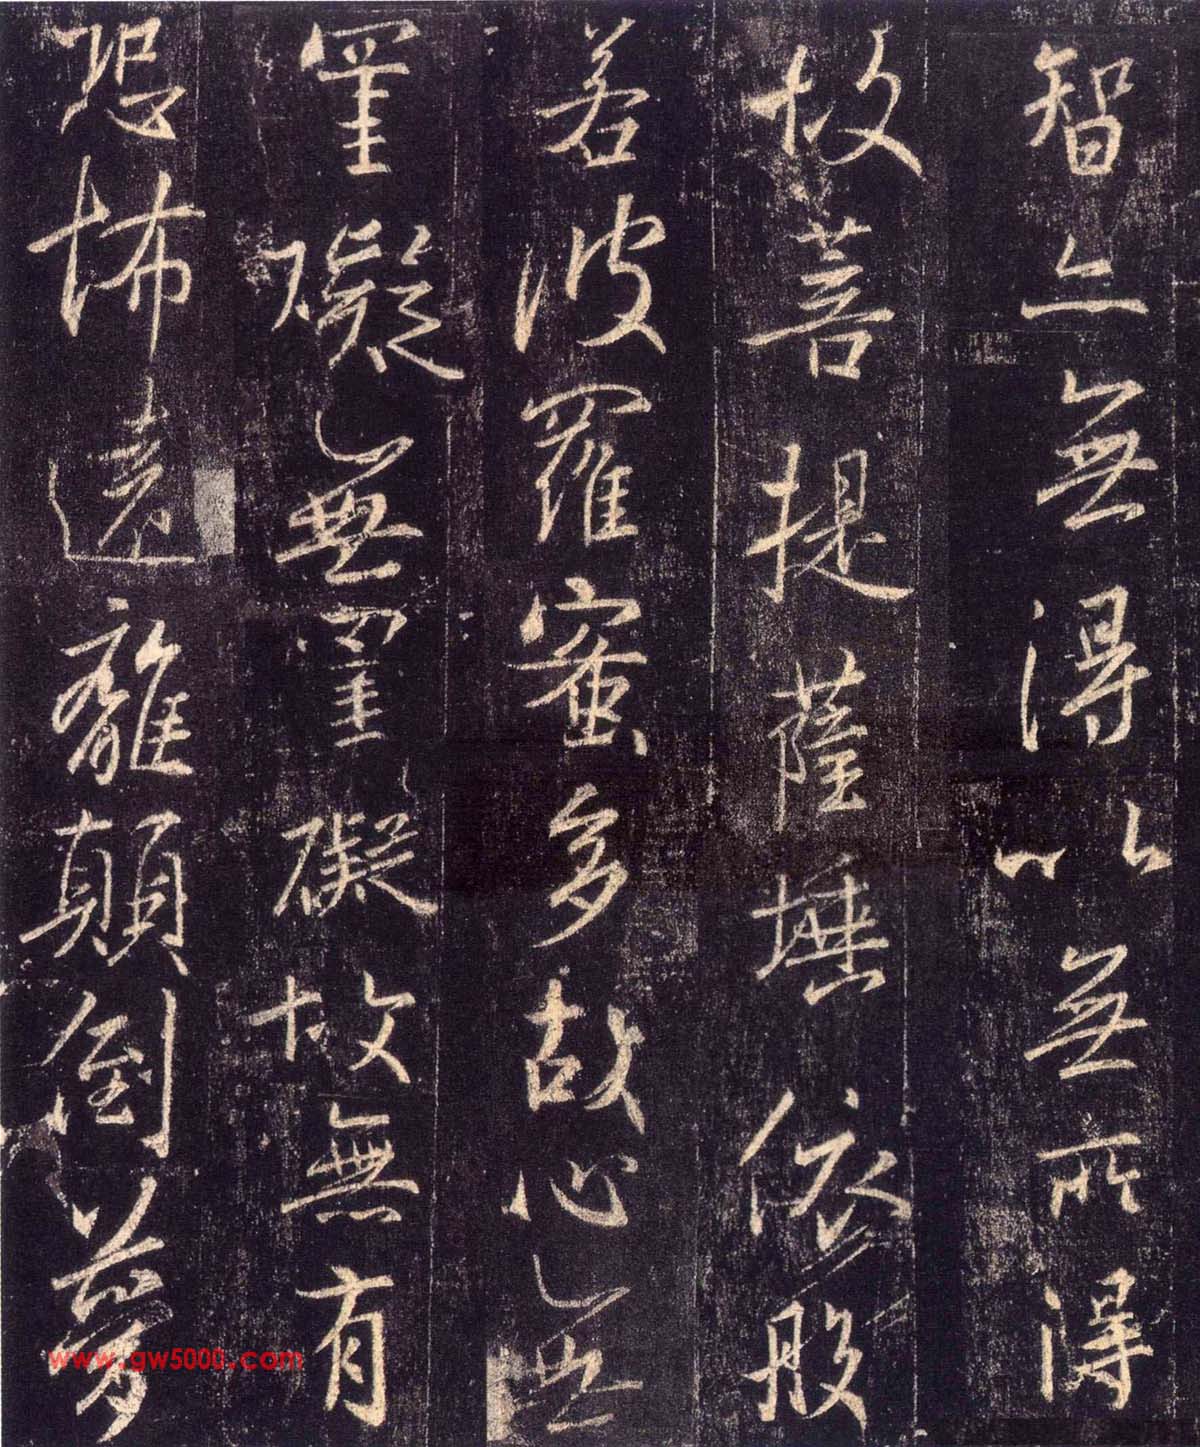 智亦無得以無所得
故菩提薩埵依般
若波羅蜜多故心無
罣礙無罣礙故無有
恐怖遠離顛倒夢
www.gw5000.com